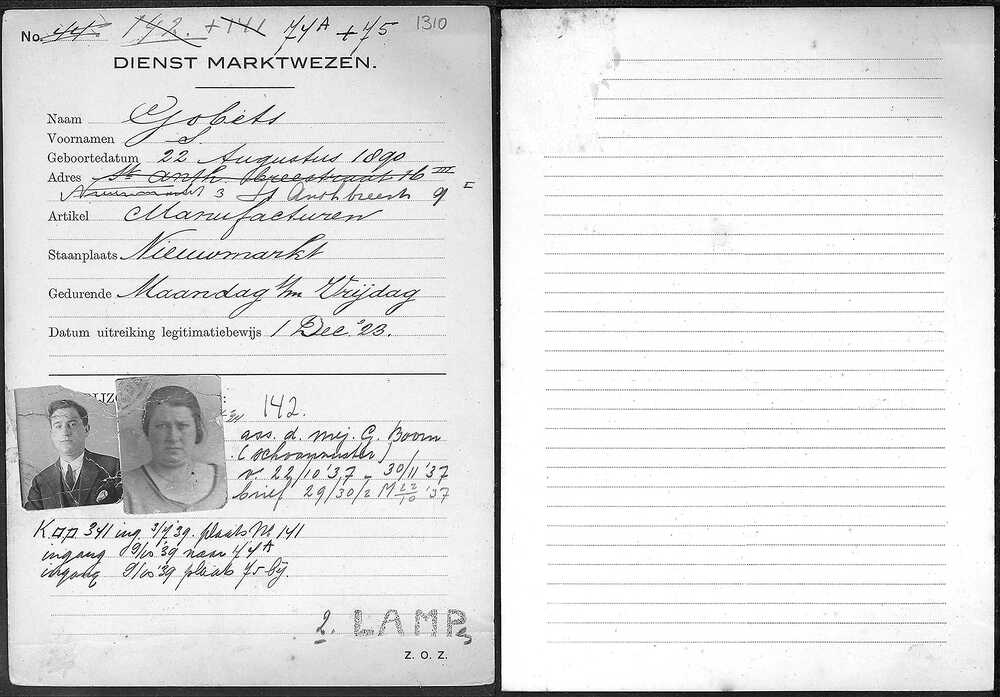 No. 44. 142. + 141 74A + 75 1310
DIENST MARKTWEZEN.
Naam Gobets
Voornamen S.
Geboortedatum 22 Augustus 1890
Adres St. Anth. Breestraat 16 III
Nieuwmarkt 3 St Anthbreestr 9 I
Artikel Manufacturen
Staanplaats Nieuwmarkt
Gedurende Maandag t/m Vrijdag
Datum uitreiking legitimatiebewijs 1 Dec. '23.
142.
ass. d. mej. G. Boom
(schoonzuster)
v. 22/10 '37 - 30/11 '37
brief 29/30/2 M 22/10 '37
ing. 3/7 '39. plaats No 141
ingang 9/10 '39 naar 74A
ingang 9/10 '39 plaats 75 bij.
2. LAMP
Z. O. Z.